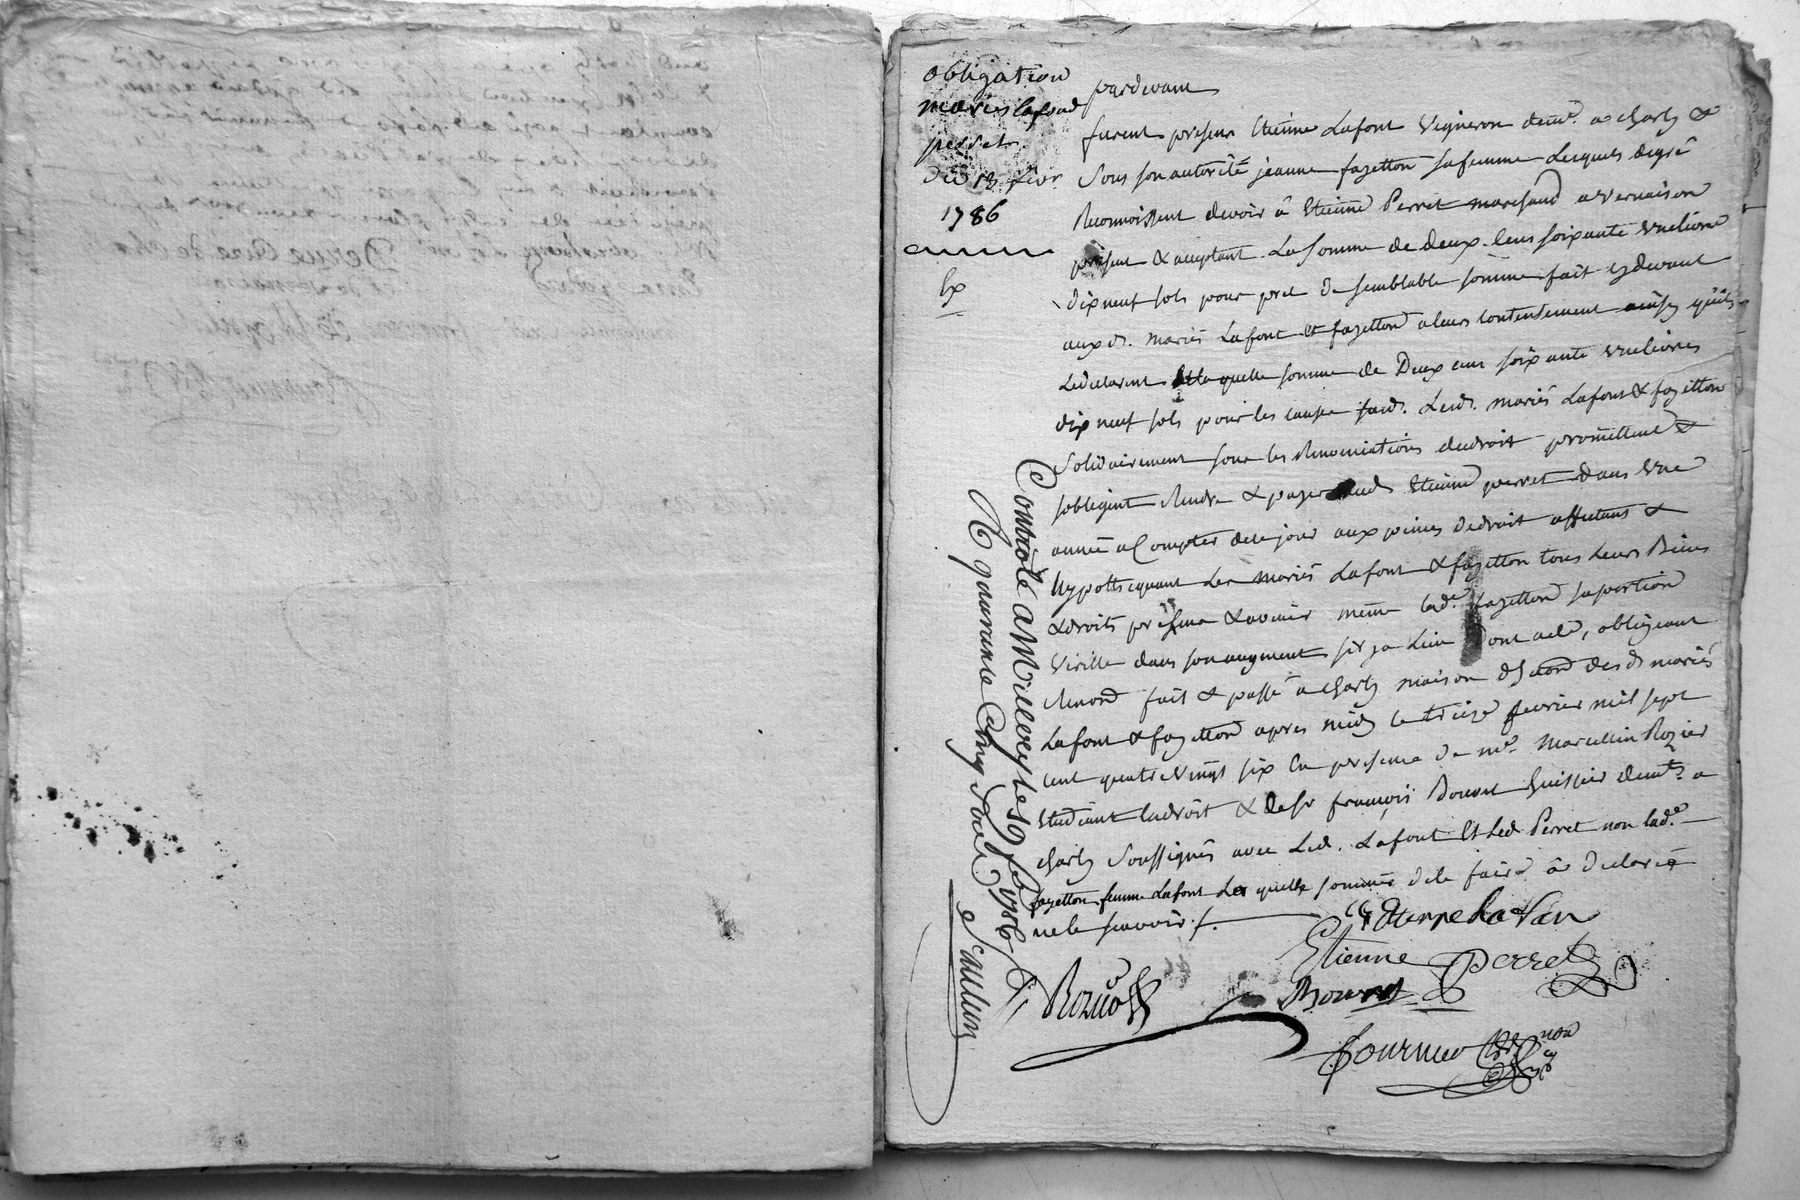 obligation
mariés Lafond
perret
du 13 fevr
1786
Ex
pardevant
furent presens Etienne Lafont vigneron demt. a charly &
sous son autorité jeanne fazetton sa femme Lesquels de gré
Reconnoissent devoir â Etienne Perret marchand a vernaison
présent & acceptant La somme de deux cens soixante une livre
dix neuf sols pour pret de semblable sômme fait cydevant
aux ds. mariés Lafont et fazetton a leur contentement ainsy qu'ils
Ledeclarent laquelle somme de Deux cens soixante une livres
dix neuf sols pour les causes susds. Lesds. mariés Lafont & fazetton
solidairement sous les Renonciations dedroit promettent &
sobligent Rendre & payer aud. Etienne perret dans une
année a Compter de ce jour aux peines de droit affectans &
hypothequant Les mariés Lafont & fazetton tous leurs Biens
& droits présens & avenir même lade. fazetton sa portion
virille dans son augment sil ya Lieu Dont acte, obligeant
Renond fait & passé a charly maison desds mariés
Lafont & fazetton apres midy le treize fevrier mil sept
cent quatre vingt six En presence de me. Marcellin Rozier
Etudiant en droit & de sr françois Bouvat huissier demts. a
charly soussignés avec Led. Lafont Et Led Perret non lade.
fazetton femme Lafont Laquelle sommée de le faire â declaré
ne le scavoir ./.
Etienne Lafon
Etienne Perret
Bouvat
Fournier
nore
Controlé a Millery le 19 fevrier 1786
R quarante Cinq sols